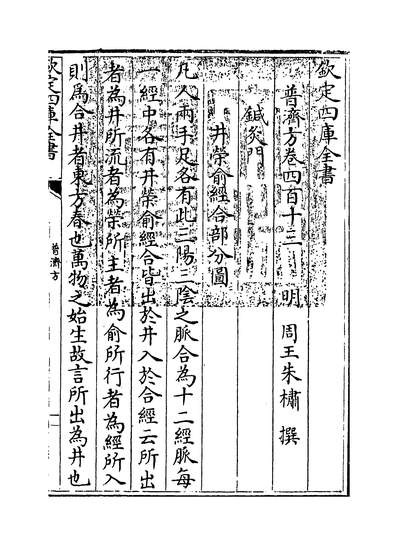 欽定四庫全書
普濟方卷四百十三
明 周王朱橚 撰
鍼灸門
井滎俞經合部分圖
凡人兩手足各有此三陽三陰之脈合為十二經脈每
一經中各有井滎俞經合皆出於井入於合經云所出
者為井所流者為滎所主者為俞所行者為經所入
則為合井者東方春也萬物之始生故言所出為井也
欽定四庫全書
普濟方
一